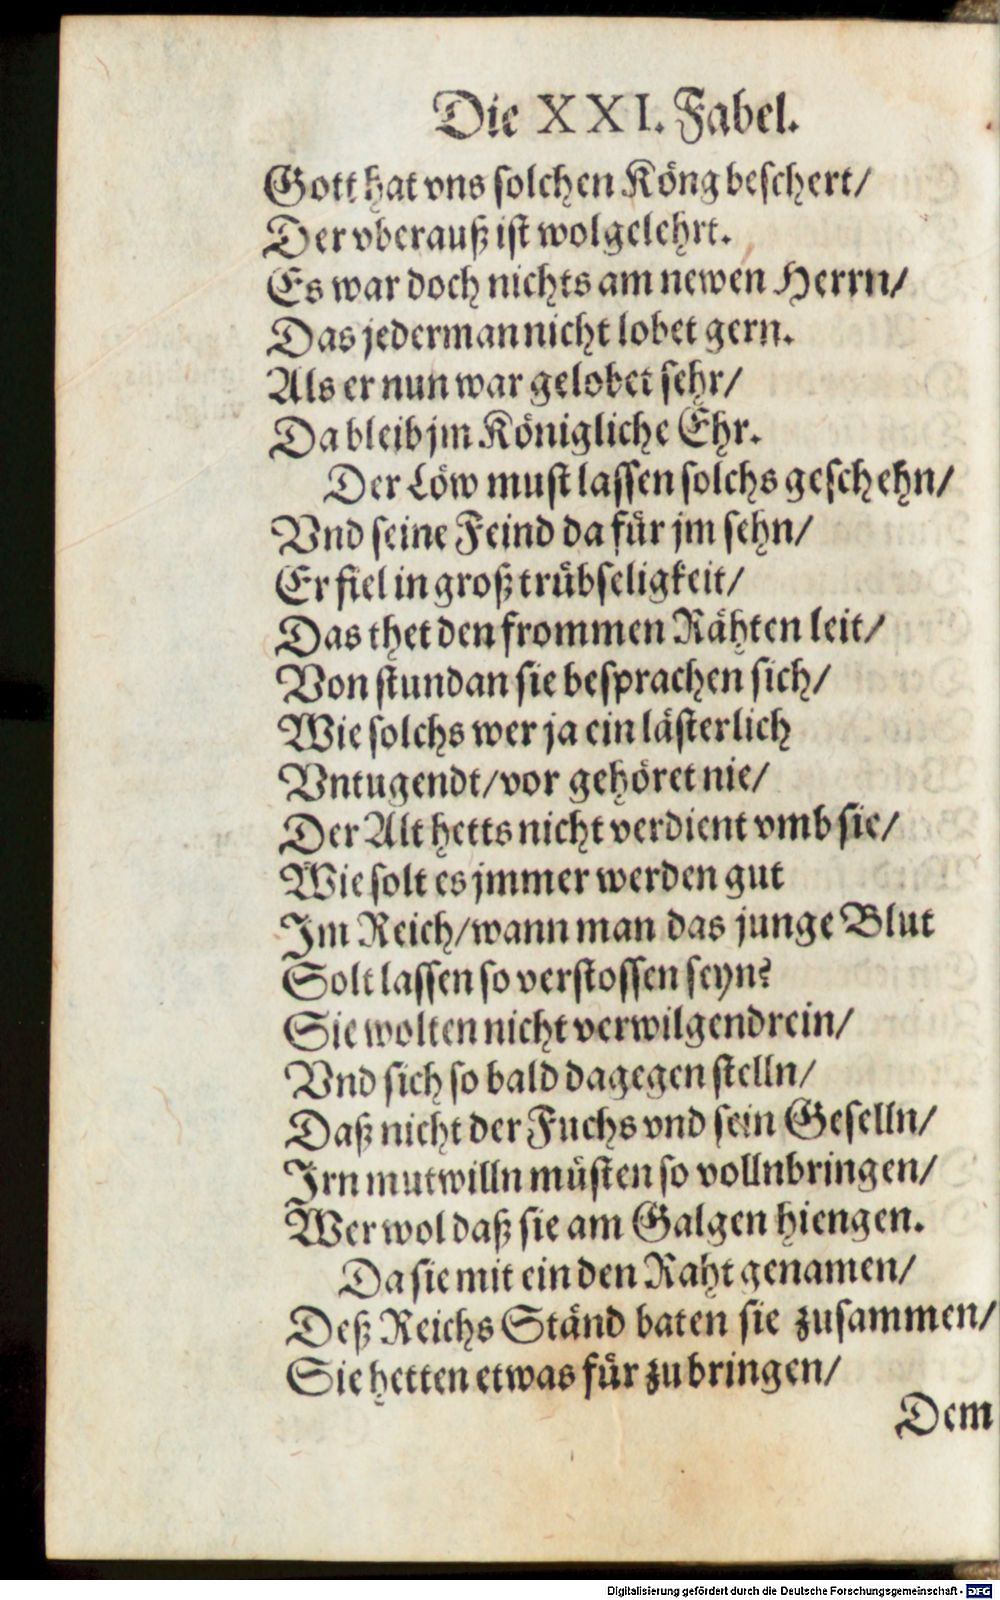 Die XXI. Fabel.
Gott hat vns solchen Köng beschert/
Der vberauß ist wolgelehrt.
Es war doch nichts am newen Herrn/
Das jederman nicht lobet gern.
Als er nun war gelobet sehr/
Da bleib jm Königliche Ehr.
Der Löw must lassen solchs geschehn/
Vnd seine Feind da für jm sehn/
Er fiel in groß trübseligkeit/
Das thet den frommen Rähten leit/
Von stundan sie besprachen sich/
Wie solchs wer ja ein lästerlich
Vntugendt/vor gehöret nie/
Der Alt hetts nicht verdient vmb sie/
Wie solt es jmmer werden gut
Im Reich/wann man das junge Blut
Solt lassen so verstossen seyn?
Sie wolten nicht verwilgen drein/
Vnd sich so bald dagegen stelln/
Daß nicht der Fuchs vnd sein Geselln/
Irn mutwilln müsten so vollnbringen/
Wer wol daß sie am Galgen hiengen.
Da sie mit ein den Raht genamen/
Deß Reichs Ständ baten sie zusammen/
Sie hetten etwas für zubringen/
Dem
Digitalisierung gefördert durch die Deutsche Forschungsgemeinschaft - DFG